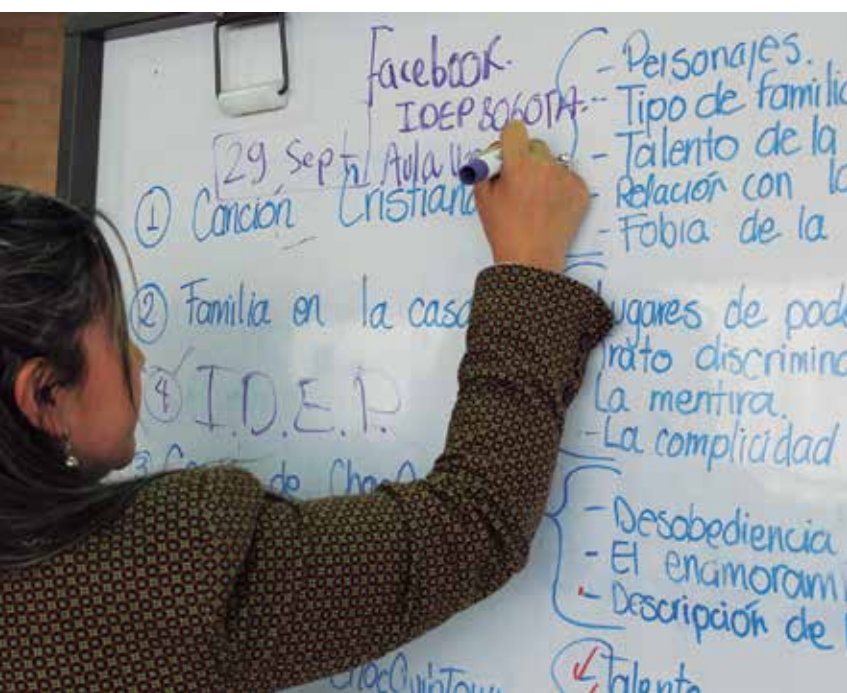 Facebook.
IDEP BOGOTA.
29 Sept Aula
① Canción Cristiana
② Familia en la casa
④ I.D.E.P.
③ de
ChocQuibTown
- Personajes.
- Tipo de familia
- Talento de la
- Relación con
- Fobia de la
lugares de
trato
La mentira.
- La complicidad
- Desobediencia
- El
- Descripción de
Talento